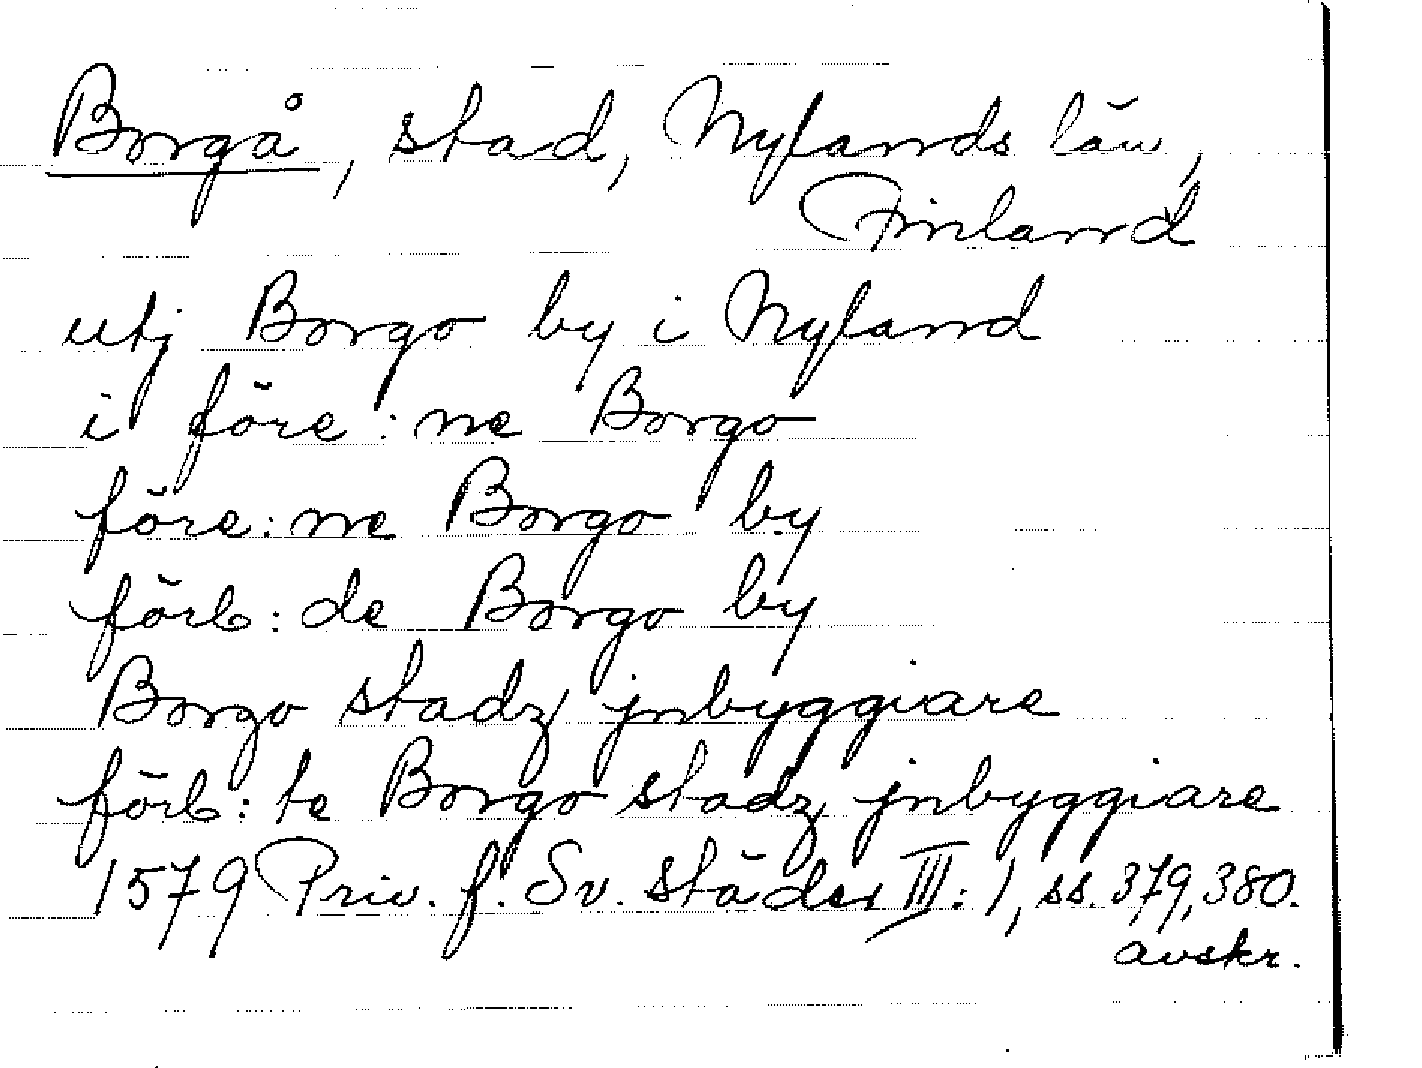 Borgå, stad, Nylands län,
Finland
utj Borgo by i Nyland
i före:ne Borgo
före:ne Borgo by
förb:de Borgo by
Borgo stadz jnbyggiare
förb:te Borgo stadz jnbyggiare
1579 Priv. f. Sv. städer III:1, ss. 379, 380.
avskr.